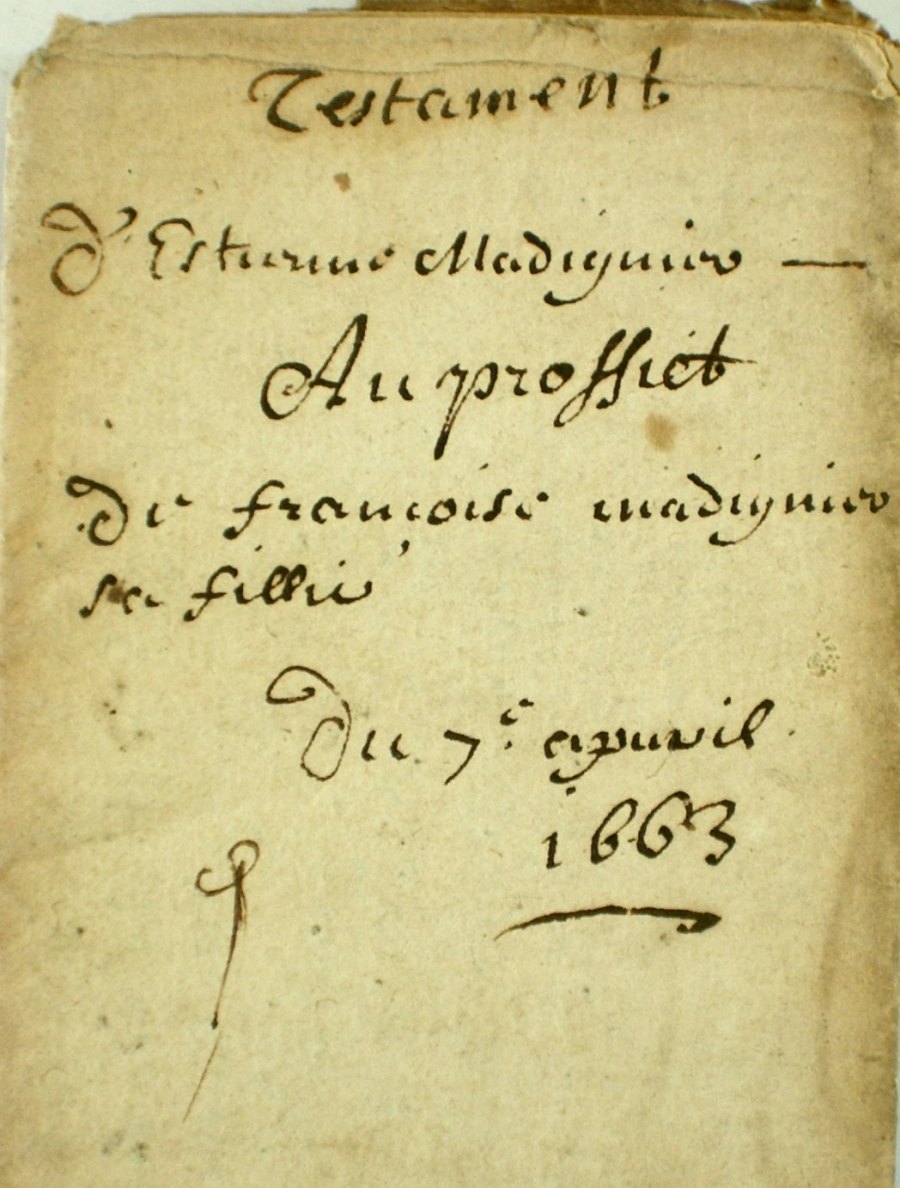 Testament
d'Estienne Madignier
Au proffict
de françoise madignier
sa fillie
Du 7e apuril
1663